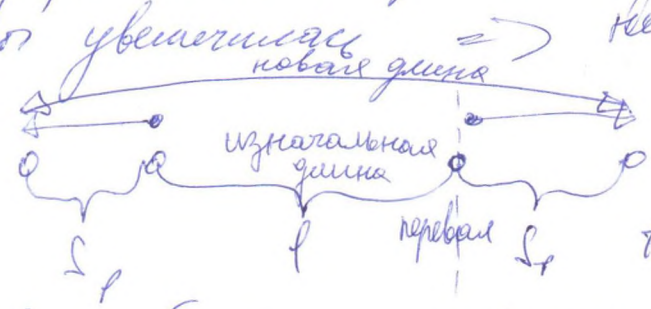 увеличилась =>
новая длина
изначальная
длина
перевал
S₁ l S₁